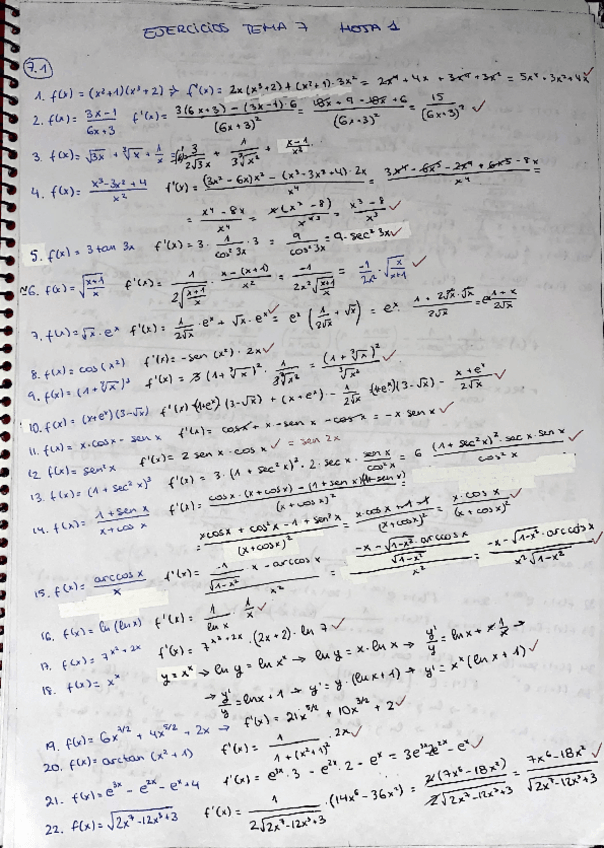 EJERCICIOS TEMA 7 HOJA 1
7.1
1. f(x) = (x²+1)(x³+2) ⇒ f'(x) = 2x(x³+2) + (x²+1)·3x² = 2x⁴ + 4x + 3x⁴ + 3x² = 5x⁴ + 3x² + 4x ✓
2. f(x) = (3x-1)/(6x+3) f'(x) = (3(6x+3) - (3x-1)·6)/(6x+3)² = (18x + 9 - 18x + 6)/(6x+3)² = 15/(6x+3)² ✓
3. f(x) = √3x + ∛x + 1/x = 3/(2√3x) + 1/(3∛x²) + (x-1)/x²
4. f(x) = (x³-3x²+4)/x² f'(x) = ((3x²-6x)x² - (x³-3x²+4)·2x)/x⁴ = (3x⁴ - 6x³ - 2x⁴ + 6x³ - 8x)/x⁴ =
= (x⁴-8x)/x⁴ = x(x³-8)/x⁴ = (x³-8)/x³ ✓
5. f(x) = 3 tan 3x f'(x) = 3 · 1/cos²3x · 3 = 9/cos²3x = 9·sec²3x ✓
6. f(x) = √((x+1)/x) f'(x) = 1/(2√((x+1)/x)) · (x-(x+1))/x² = -1/(2x²√((x+1)/x)) = -1/2x² · √(x/(x+1)) ✓
7. f(x) = √x · eˣ f'(x) = 1/(2√x) · eˣ + √x · eˣ ✓ = eˣ (1/(2√x) + √x) = eˣ · (1 + 2√x·√x)/(2√x) =
8. f(x) = cos(x²) f'(x) = -sen(x²)·2x ✓
9. f(x) = (1+∛x)³ f'(x) = 3(1+∛x)² · 1/(3∛x²) = (1+∛x)²/∛x² ✓
10. f(x) = (x+eˣ)(3-√x) f'(x) (1+eˣ)(3-√x) + (x+eˣ) · -1/(2√x) (1+eˣ)(3-√x) - (x+eˣ)/(2√x)
11. f(x) = x·cosx - senx f'(x) = cosx + x·-senx - cosx = -x senx ✓
12 f(x) = sen²x f'(x) = 2 sen x · cos x ✓ = sen 2x
13. f(x) = (1+sec²x)³ f'(x) = 3·(1+sec²x)²·2·sec x · sen x/cos²x = 6 (1+sec²x)²·sec x·sen x/cos²x ✓
14. f(x) = (1+sen x)/(x+cos x) f'(x) = (cos x·(x+cosx) - (1+sen x)(1-sen x))/(x+cosx)²
= (xcosx + cos²x - 1 + sen²x)/(x+cosx)² = (x·cosx + 1 - 1)/(x+cosx)² = x·cosx/(x+cosx)² ✓
15. f(x) = arccosx/x f'(x) = (-1/√(1-x²) · x - arccosx)/x² = ((-x - √(1-x²)·arccosx)/√(1-x²))/x² = (-x - √(1-x²)·arccosx)/(x²√(1-x²)) ✓
16. f(x) = ln(lnx) f'(x) = 1/lnx · 1/x ✓
17. f(x) = 7^(x²+2x) f'(x) = 7^(x²+2x) · (2x+2) · ln 7 ✓
18. f(x) = xˣ y = xˣ → ln y = ln xˣ → ln y = x·ln x → y'/y = lnx + x·1/x →
→ y'/y = lnx + 1 → y' = y·(lnx+1) → y' = xˣ(lnx+1) ✓
19. f(x) = 6x^(7/2) + 4x^(5/2) + 2x → f'(x) = 21x^(5/2) + 10x^(3/2) + 2 ✓
20. f(x) = arctan(x²+1) f'(x) = 1/(1+(x²+1)²) · 2x ✓
21. f(x) = e³ˣ - e²ˣ - eˣ + 4 f'(x) = e³ˣ·3 - e²ˣ·2 - eˣ = 3e³ˣ - 2e²ˣ - eˣ ✓
22. f(x) = √(2x⁷-12x³+3) f'(x) = 1/(2√(2x⁷-12x³+3)) · (14x⁶-36x²) = 2(7x⁶-18x²)/(2√(2x⁷-12x³+3)) = (7x⁶-18x²)/√(2x⁷-12x³+3) ✓